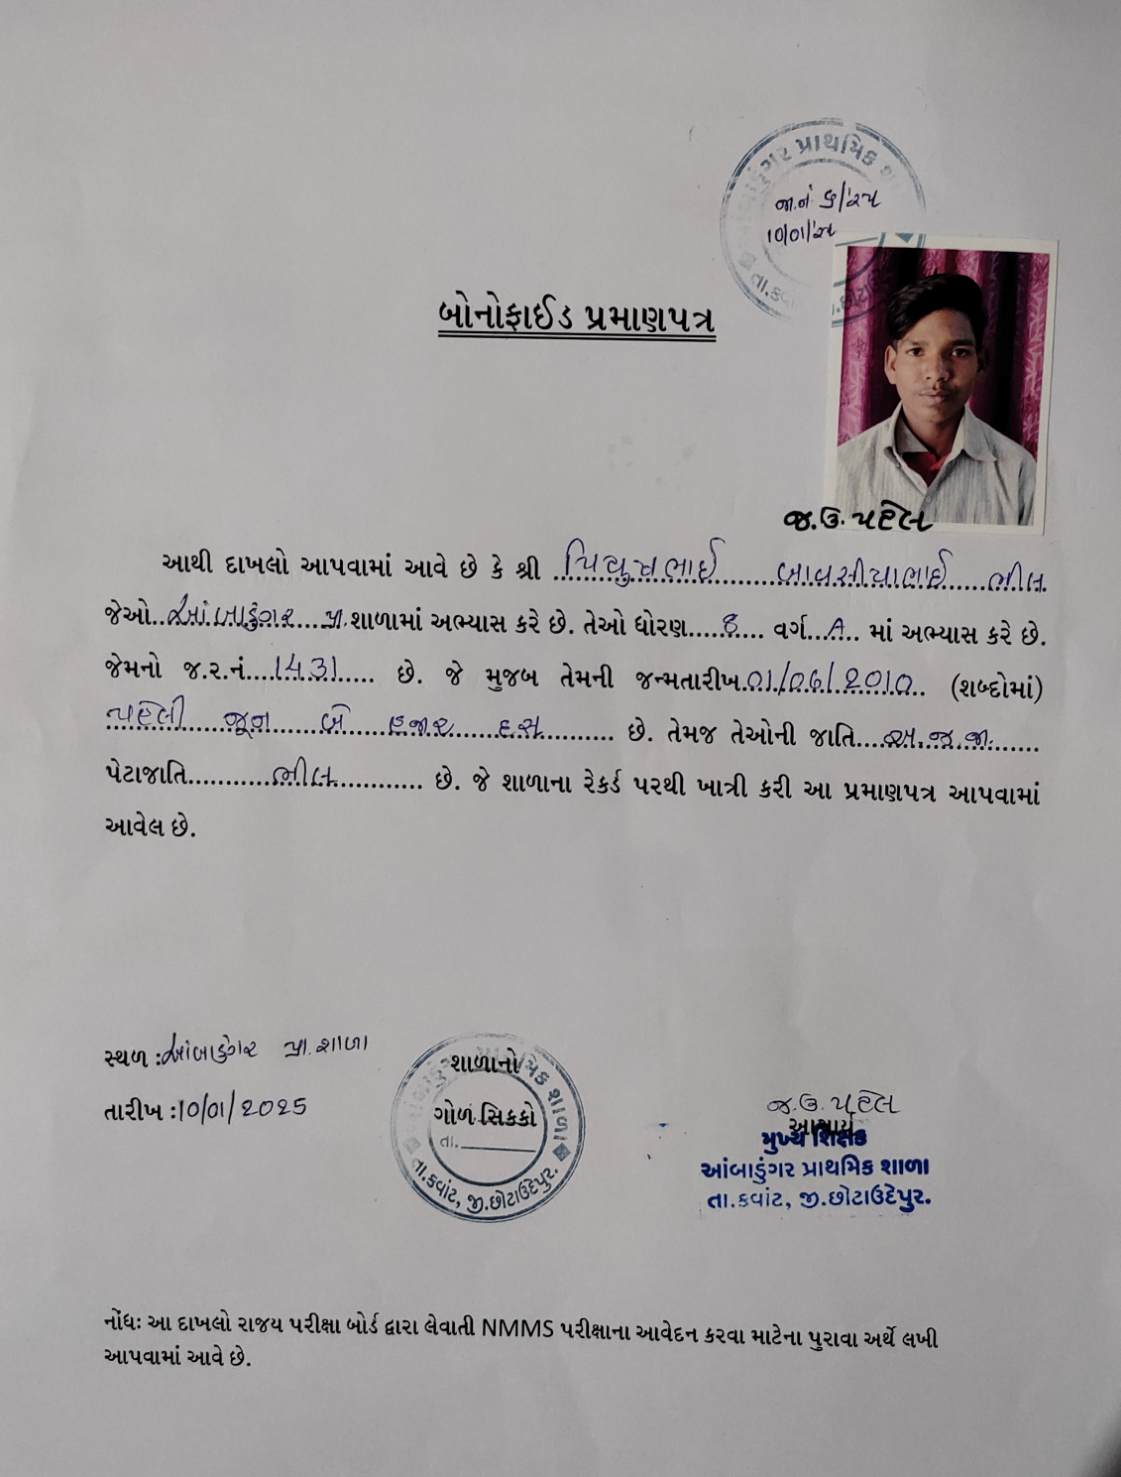 આંબાડુંગર પ્રાથમિક શા
જા.નં ૬/૨૫
10/01/૨૫
તા.કવાં
બોનોફાઈડ પ્રમાણપત્ર
જ.ઉ. પટેલ
આથી દાખલો આપવામાં આવે છે કે શ્રી પિયુષભાઈ ભીલ
જેઓ આંબાડુંગર પ્રા. શાળામાં અભ્યાસ કરે છે. તેઓ ધોરણ 8 વર્ગ A માં અભ્યાસ કરે છે.
જેમનો જ.ર.નં. 1431 છે. જે મુજબ તેમની જન્મતારીખ 01/06/2010 (શબ્દોમાં)
પહેલી જૂન બે હજાર દસ છે. તેમજ તેઓની જાતિ અ.જ.જા.
પેટાજાતિ ભીલ છે. જે શાળાના રેકર્ડ પરથી ખાત્રી કરી આ પ્રમાણપત્ર આપવામાં
આવેલ છે.
સ્થળ : આંબાડુંગર પ્રા. શાળા
તારીખ : 10/01/2025
શાળાનો
ગોળ સિકકો
તા.
તા.કવાંટ, જી.છોટાઉદેપુર.
જ.ઉ. પટેલ
આચાર્ય
મુખ્ય શિક્ષક
આંબાડુંગર પ્રાથમિક શાળા
તા.કવાંટ, જી.છોટાઉદેપુર.
નોંધઃ આ દાખલો રાજય પરીક્ષા બોર્ડ દ્વારા લેવાતી NMMS પરીક્ષાના આવેદન કરવા માટેના પુરાવા અર્થે લખી
આપવામાં આવે છે.